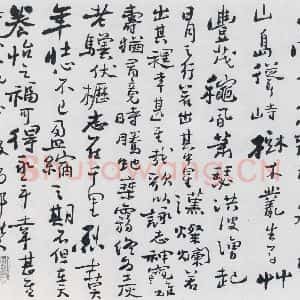 山島竦峙木叢生百艸
豐茂秋風蕭瑟洪波湧起
日月之行若出其中星漢燦爛若
出其裡幸甚至哉歌以詠志神龜雖
壽猶有竟時騰蛇乘霧終為灰
老驥伏櫪志在千里烈士暮
年壯心不已盈縮之期不但在天
養怡之福可得永年幸甚至
Shufawang.CN